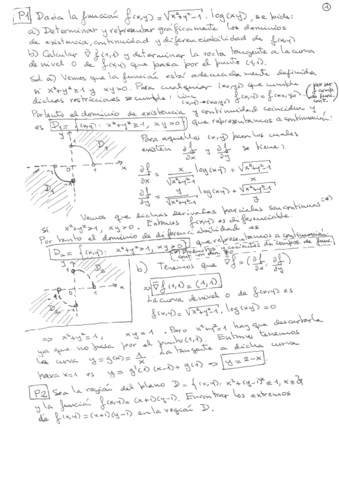 P1 Dada la función f(x,y) = √(x²+y²-1) · log(x·y), se pide:
a) Determinar y representar gráficamente los dominios
de existencia, continuidad y diferenciabilidad de f(x,y)
b) Calcular ∇f(1,1) y determinar la recta tangente a la curva
de nivel 0 de f(x,y) que pasa por el punto (1,1).
Sol a) Vemos que la función está adecuadamente definida
si x²+y² ≥ 1 y xy>0. Para cualquier (x,y) que cumpla
dichas restricciones se cumple: lim f(x,y) = f(x₀,y₀)
Por tanto el dominio de existencia y continuidad coinciden y
es D₁ = {(x,y): x²+y² ≥ 1, xy>0} que representamos a continuación:
Para aquellos (x,y) para los cuales
existen ∂f/∂x y ∂f/∂y se tiene:
∂f/∂x = x/√(x²+y²-1) log(xy) + √(x²+y²-1)/x
∂f/∂y = y/√(x²+y²-1) log(xy) + √(x²+y²-1)/y
Vemos que dichas derivadas parciales son continuas (*)
si x²+y²>1, xy>0. Entonces f(x,y) es diferenciable.
Por tanto el dominio de diferenciabilidad es
D₂ = {(x,y): x²+y²>1, xy>0} que representamos a continuación
b) Tenemos que ∇f = (∂f/∂x, ∂f/∂y)
⇒ ∇f(1,1) = (1,1)
La curva de nivel 0 de f(x,y) es
f(x,y) = √(x²+y²-1) · log(xy) = 0
⇒ x²+y²=1, xy=1. Pero x²+y²=1 hay que descartarla
ya que no pasa por el punto (1,1). Entonces tenemos
la curva y = g(x) = 1/x. La tangente a dicha curva
para x=1 es y = g'(1)(x-1) + g(1) ⇒ y = 2-x.
P2 Sea la región del plano D = {(x,y): x²+(y-1)² ≤ 1, x≥0}
y la función f(x,y) = (x+1)(y-1). Encontrar los extremos
de f(x,y) = (x+1)(y-1) en la región D.